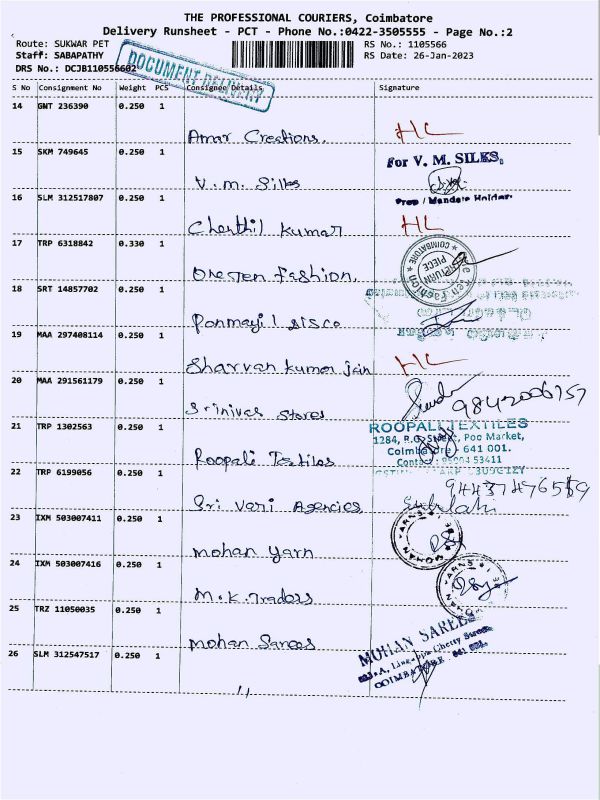 THE PROFESSIONAL COURIERS, Coimbatore
Delivery Runsheet - PCT - Phone No.:0422-3505555 - Page No.:2
Route: SUKWAR PET
RS No.: 1105566
Staff: SABAPATHY
RS Date: 26-Jan-2023
DRS No.: DCJB110556602
DOCUMENT DELIVERY
S No Consignment No Weight PCS Consignee Details Signature
14 GWT 236390 0.250 1
Amar Creations. HL
15 SKM 749645 0.250 1
For V. M. SILKS,
V.m. Silks
Prop / Mandate Holder
16 SLM 312517807 0.250 1
Chenthil Kumar HL
17 TRP 6318842 0.330 1
COIMBATORE
PIECE
Oneten Fashion.
18 SRT 14857702 0.250 1
Ponmayil sisco
19 MAA 297408114 0.250 1
Sharvan Kumar jain HL
20 MAA 291561179 0.250 1
Srinivas Stores
21 TRP 1302563 0.250 1
ROOPALI TEXTILES
1284, P.G. Street, Poo Market,
Coimbatore 641 001.
Roopali Textiles
22 TRP 6199056 0.250 1
Sri Vari Agencies
23 IXM 503007411 0.250 1
MOHAN YARNS
Mohan Yarn
24 IXM 503007416 0.250 1
MOHAN YARNS
M.K. Traders
25 TRZ 11050035 0.250 1
Mohan Sarees
MOHAN SAREES
26 SLM 312547517 0.250 1
COIMBATORE 641 001
11